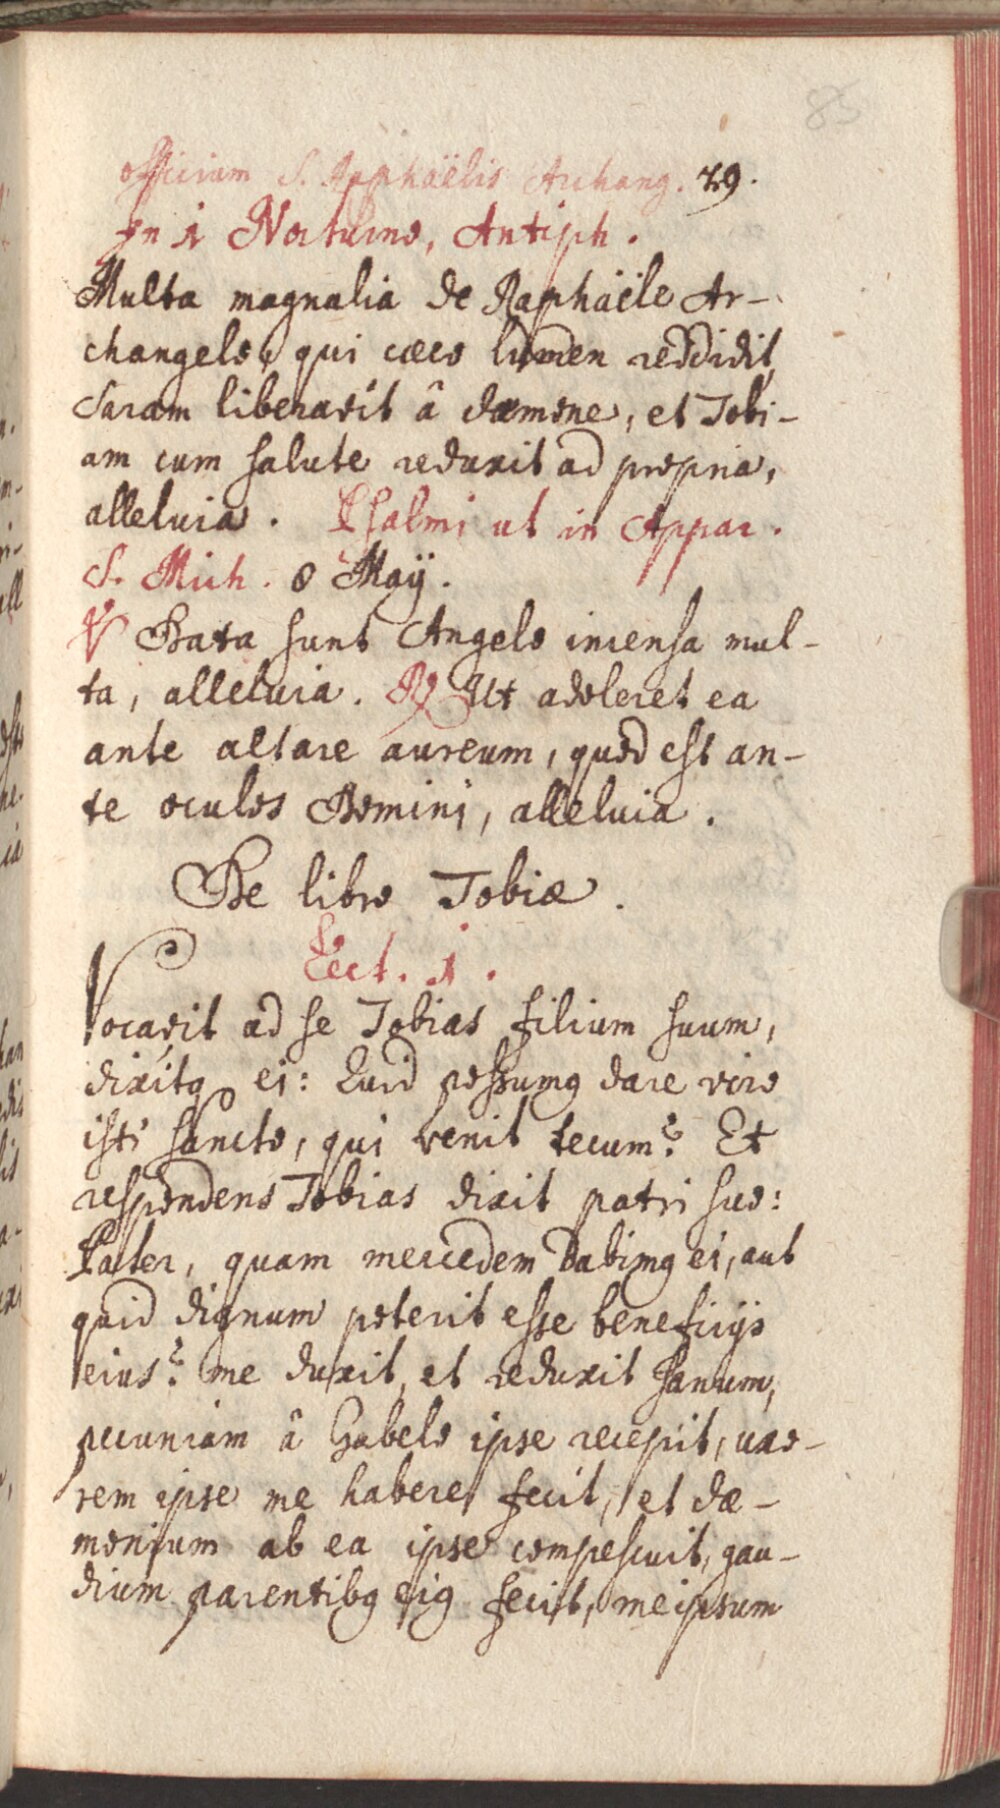 85
Officium S. Raphaëlis Archang. 79.
In 1 Nocturno, Antiph.
Multa magnalia de Raphaële Ar-
changelo, qui cæco lumen reddidit,
Saram liberavit â dæmone, et Tobi-
am cum salute reduxit ad propria,
alleluia. Psalmi ut in Appar.
S. Mich. 8 Maÿ.
℣ Data sunt Angelo incensa mul-
ta, alleluia. ℟ Ut adoleret ea
ante altare aureum, quod est an-
te oculos Domini, alleluia.
De libro Tobiæ.
Lect. 1.
Vocavit ad se Tobias filium suum,
dixitq ei: Quid possumꝰ dare viro
isti sancto, qui venit tecum? Et
respondens Tobias dixit patri suo:
Pater, quam mercedem dabimꝰ ei, aut
quid dignum poterit esse beneficijs
eius? me duxit, et reduxit sanum,
pecuniam â Gabelo ipse recepit, uxo-
rem ipse me habere fecit, et dæ-
monium ab ea ipse compescuit, gau-
dium parentibꝰ eiꝰ fecit, meipsum